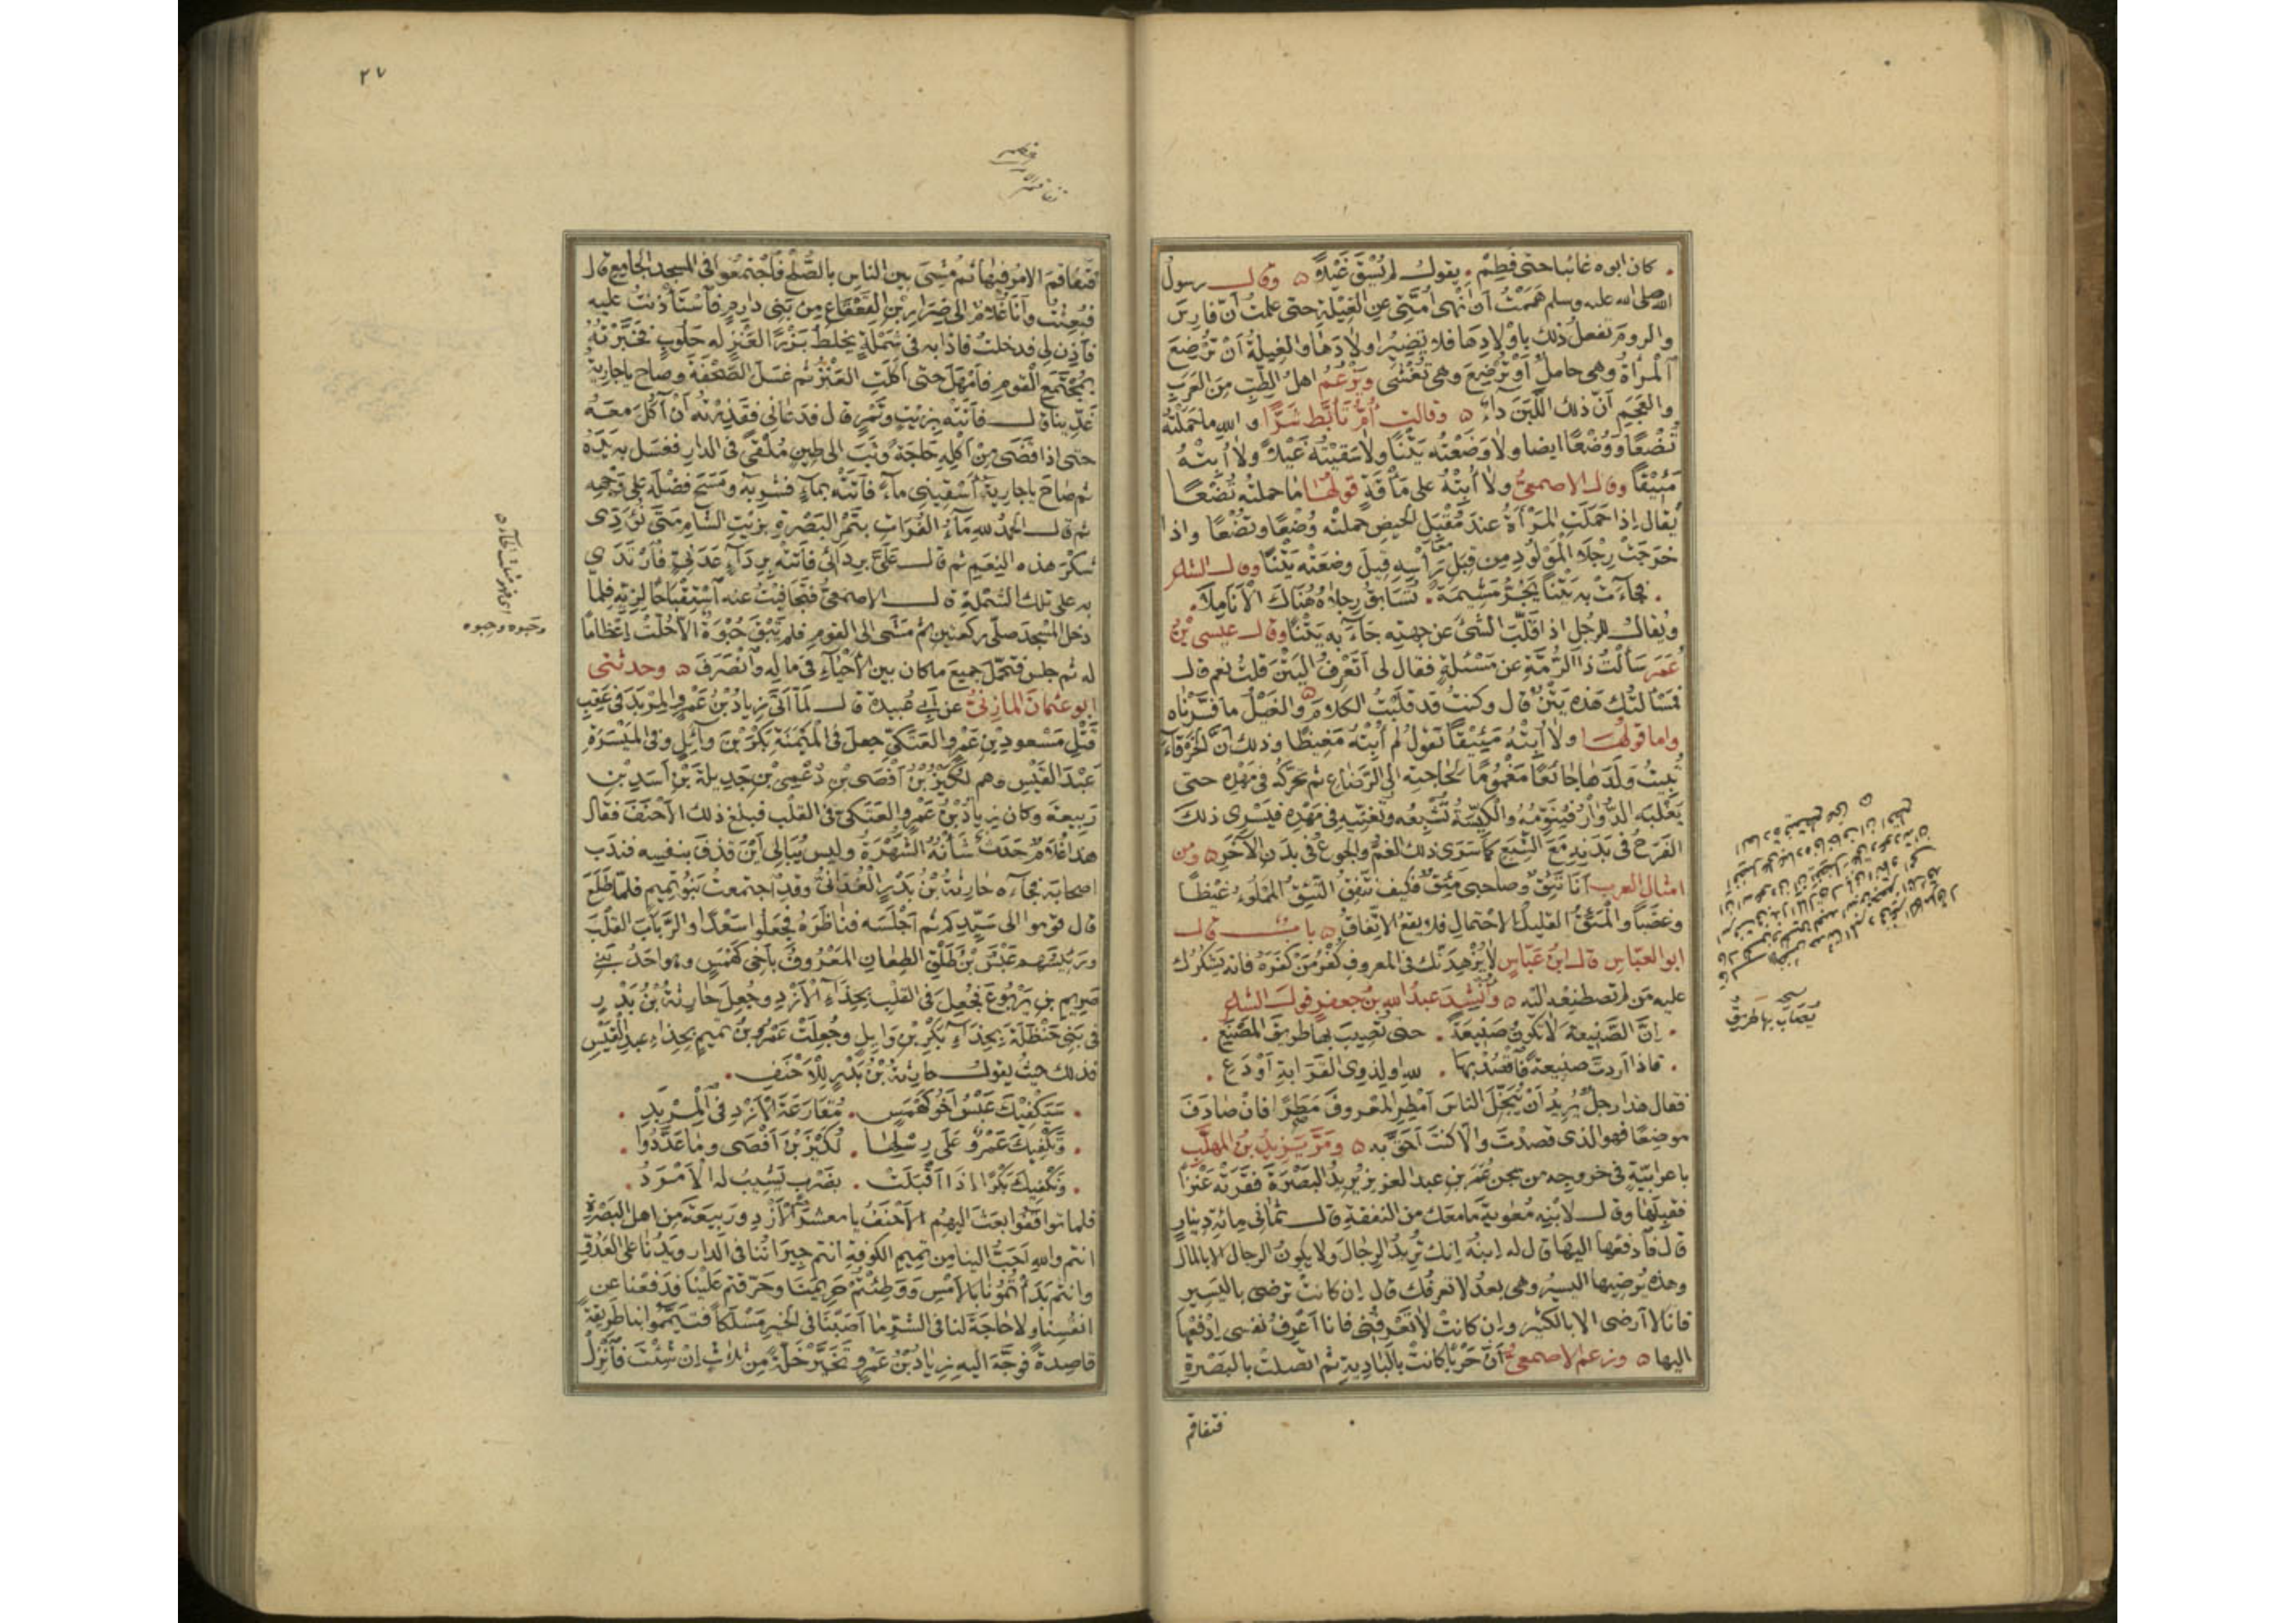 . كان ابوه غائبا حتى فطم . يقول لم يُسْقَ غَيْلاً ه وقال رسول
الله صلى الله عليه وسلم هممتُ أن أنهى أمتى عن الغيلة حتى علمت أن فارس
والروم تفعل ذلك باولادها فلا تضير اولادها والغيلة أن ترضع
المرأة وهى حامل أو ترضع وهى تغشى ويزعم اهل الطب من العرب
والعجم أن ذلك اللبن داء ه وقالت أم تأبط شرا والله ما حملته
تضعا ووضعا ايضا ولا وضعته يتنا ولا سقيته غيلا ولا أبته
مئيقا وقال الاصمعى ولا أبته على مأقة قولها ما حملته تضعا
يقال إذا حملت المرأة عند مقبل الحيض حملته وضعا وتضعا واذا
خرجت رجلا المولود من قبل رأسه قيل وضعته يتنا وقال الشاعر
. فجاءت به يتنا يجر مشيمة . تسابق رجلاه هناك الأناملا .
ويقال للرجل اذا قلب الشئ عن جهته جاء به يتنا وقال عيسى بن
عمر سألت ذا الرمة عن مسئلة فقال لى أتعرف اليتن قلت نعم قال
فمسألتك هذه يتن قال وكنت قد قلبت الكلام والغيل ما فسرناه
واما قولها ولا أبته مئيقا تقول لم أبته مغيظا وذلك أن الخرقاء
تبيت ولدها جائعا مغموما لحاجته الى الرضاع ثم تحركه فى مهده حتى
يغلبه الدوار فينومه والكيسة تشبعه وتغنيه فى مهده فيسرى ذلك
الفرح فى بدنه مع الشبع كما سرى ذلك الغم والجوع فى بدن الآخر ه ومن
امثال العرب أنا تئق وصاحبى مئق فكيف نتفق التئق المملوء غيظا
وغضبا والمئق القليل الاحتمال فلا يقع الاتفاق ه باب قال
ابو العباس قال ابن عباس لا يزهدنك فى المعروف كفر من كفره فانه يشكرك
عليه من لم تصطنعه اليه ه وأنشد عبد الله بن جعفر قول الشاعر
. إن الصنيعة لا تكون صنيعة . حتى تصيب بها طريق المصنع .
. فاذا أردت صنيعة فاقصد بها . لله او لذوى القرابة أو دع .
فقال هذا رجل يريد أن يبخل الناس أمطر المعروف مطرا فان صادف
موضعا فهو الذى قصدت والا كنت أحق به ه ومر يزيد بن المهلب
باعرابية فى خروجه من سجن عمر بن عبد العزيز يريد البصرة فقرته عنزا
فقبلها وقال لابنه معوية ما معك من النفقة قال ثمانى مائة دينار
قال فادفعها اليها قال له ابنه إنك تريد الرجال ولا يكون الرجال الا بالمال
وهذه يرضيها اليسير وهى بعد لا تعرفك قال إن كانت ترضى باليسير
فانا لا أرضى الا بالكثير وإن كانت لا تعرفنى فانا أعرف نفسى ادفعها
اليها ه وزعم الاصمعى أن حربا كانت بالبادية ثم اتصلت بالبصرة
فتفاقم
يصاب بها طريق
٢٧
فتفاقم الامر فيها ثم مشى بين الناس بالصلح فاجتمعوا فى المسجد الجامع قال
فبعثت وأنا غلام الى ضرار بن القعقاع من بنى دارم فاستأذنت عليه
فأذن لى فدخلت فاذا به فى شملة يخلط بزرا لعنز له حلوب فخبرته
بمجتمع القوم فأمهل حتى أكلت العنز ثم غسل الصحفة وصاح يا جارية
غدينا قال فأتته بزيت وتمر قال فدعانى فقذرته أن آكل معه
حتى اذا قضى من أكله حاجة وثب الى طين ملقى فى الدار فغسل به يده
ثم صاح يا جارية أسقينى ماء فأتته بماء فشربه ومسح فضله على وجهه
ثم قال الحمد لله ماء الفرات بتمر البصرة بزيت الشام متى نؤدى
شكر هذه النعم ثم قال على بردائى فأتته برداء عدنى فارتدى
به على تلك الشملة قال الاصمعى فتجافيت عنه استقباحا لزيه فلما
دخل المسجد صلى ركعتين ثم مشى الى القوم فلم تبق حبوة الا حلت إعظاما
له ثم جلس فتحمل جميع ما كان بين الأحياء فى ماله وانصرف ه وحدثنى
ابو عثمان المازنى عن أبى عبيدة قال لما أتى زياد بن عمرو المربد فى عقب
قتل مسعود بن عمرو العتكى جعل فى الميمنة بكر بن وائل وفى الميسرة
عبد القيس وهم لكيز بن أفصى بن دعمى بن جديلة بن أسد بن
ربيعة وكان زياد بن عمرو العتكى فى القلب فبلغ ذلك الأحنف فقال
هذا غلام حدث شأنه الشهرة وليس يبالى أين قذف بنفسه فندب
اصحابه فجاءه حارثة بن بدر الغدانى وقد اجتمعت بنو تميم فلما طلع
قال قوموا الى سيدكم ثم أجلسه فناظره فجعلوا سعدا والرباب القلب
ورئيسهم عبس بن طلق الطعان المعروف بأخى كهمس وهو احد بنى
صريم بن يربوع فجعل فى القلب بحذاء الأزد وجعل حارثة بن بدر
فى بنى حنظلة بحذاء بكر بن وايل وجعلت عمرو بن تميم بحذاء عبد القيس
فذلك حيث يقول حارثة بن بدر للأحنف .
. سيكفيك عبس أخو كهمس . مقارعة الأزد فى المربد .
. وتكفيك عمرو على رسلها . لكيز بن أفصى وما عددوا .
. وتكفيك بكرا اذا أقبلت . بضرب تشيب له الأمرد .
فلما تواقفوا بعث اليهم الأحنف يا معشر الأزد وربيعة من اهل البصرة
انتم والله أحب الينا من تميم الكوفة انتم جيراننا فى الدار ويدنا على العدو
وانتم بدأتمونا بالأمس ووطئتم حريمنا وحرقتم علينا فدفعنا عن
انفسنا ولا حاجة لنا فى الشر ما أصبنا فى الخير مسلكا فتيمموا بنا طريقة
قاصدة فوجه اليه زياد بن عمرو تخير خلة من ثلاث إن شئت فأنزل
وحبوه وحبوه